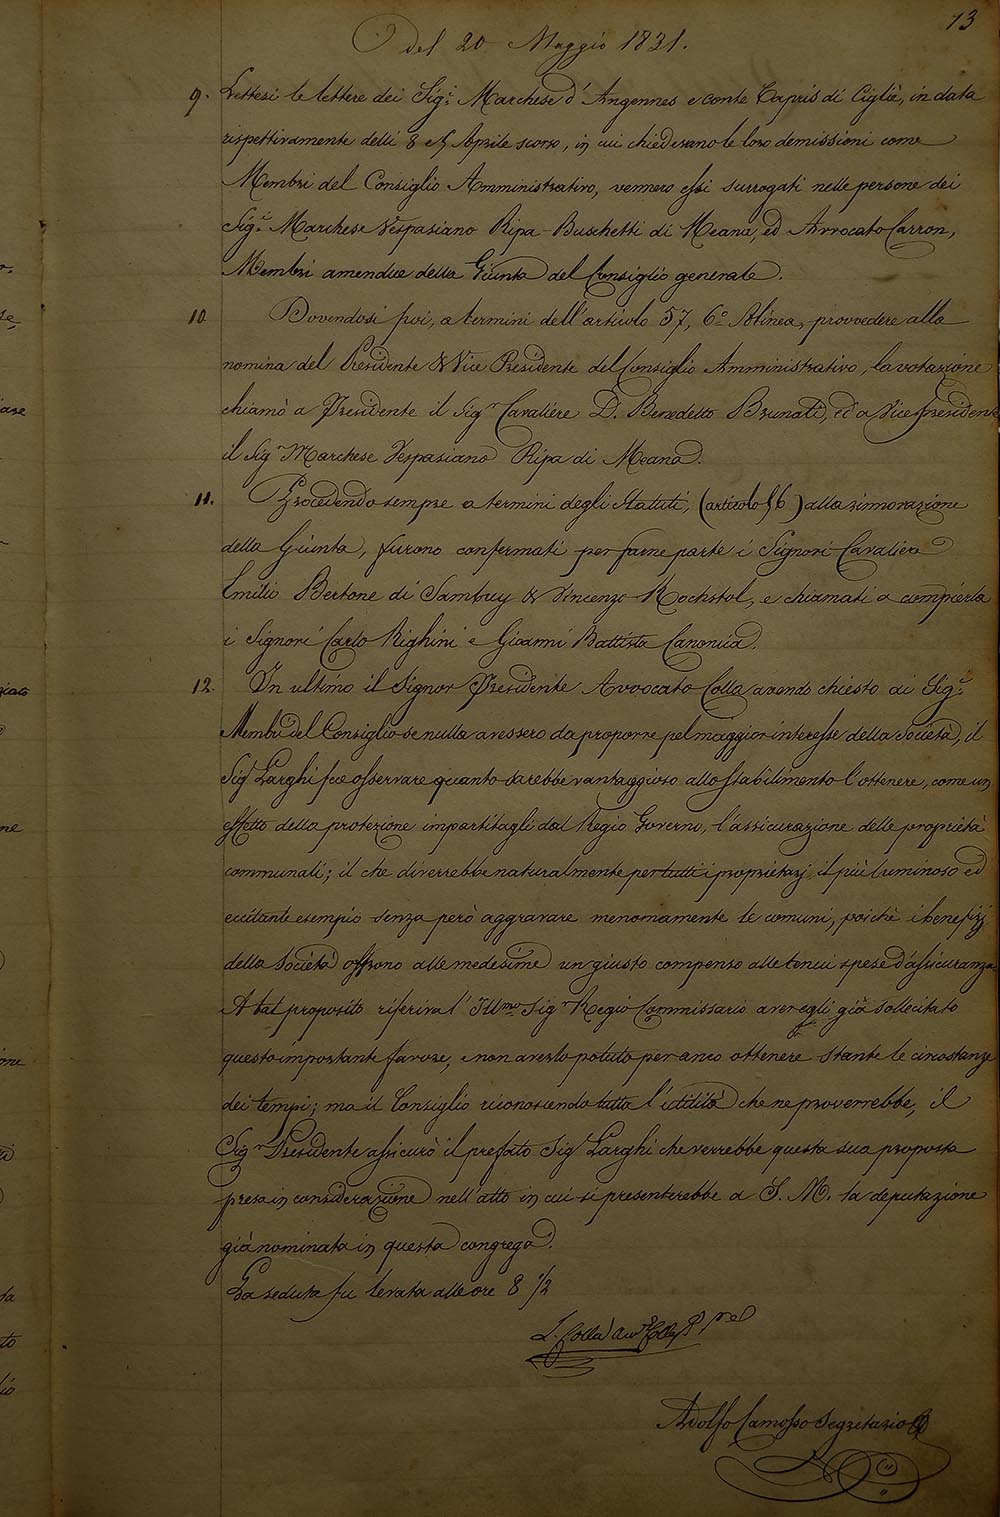 13
Del 20 Maggio 1831.
9. Lettesi le lettere dei Sig.i Marchese d'Angennes e conte Capris di Ciglié, in data
rispettivamente delli 8 e 5 Aprile scorso, in cui chiedevano le loro demissioni come
Membri del Consiglio Amministrativo, vennero essi surrogati nelle persone dei
Sig.i Marchese Vespasiano Ripa-Buschetti di Meana, ed Avvocato Carron,
Membri amendue della Giunta del Consiglio generale.
10. Dovendosi poi, a termini dell'articolo 57, 6.o Alinea, provvedere alla
nomina del Presidente & Vice Presidente del Consiglio Amministrativo, la votazione
chiamò a Presidente il Sig.r Cavaliere D. Benedetto Brunati, ed a Vice presidente
il Sig.r Marchese Vespasiano Ripa di Meana.
11. Procedendo sempre a termini degli Statuti, (articolo 56) alla rinnovazione
della Giunta, furono confermati per farne parte i Signori Cavaliere
Emilio Bertone di Sambuy & Vincenzo Mochstol, e chiamati a compierla
i Signori Carlo Righini e Gioanni Battista Canonica.
12. In ultimo il Signor Presidente Avvocato Colla avendo chiesto ai Sig.i
Membri del Consiglio se nulla avessero da proporre pel maggior interesse della Società, il
Sig.r Larghi fece osservare quanto sarebbe vantaggioso allo stabilimento l'ottenere, come un
effetto della protezione impartitagli dal Regio Governo, l'assicurazione delle proprietà
communali; il che diverrebbe naturalmente per tutti i proprietarj il più luminoso ed
eccitante esempio senza però aggravare menomamente le comuni, poichè i benefizj
della Società offrono alle medesime un giusto compenso alle tenui spese d'assicuranza.
A tal proposito riferiva l'Ill.mo Sig.r Regio Commissario aver egli già sollecitato
questo importante favore, e non averlo potuto per anco ottenere stante le circostanze
dei tempi; ma il Consiglio riconoscendo tutta l'utilità che ne proverrebbe, il
Sig.r Presidente assicurò il prefato Sig.r Larghi che verrebbe questa sua proposta
presa in considerazione nell'atto in cui si presenterebbe a S. M. la deputazione
già nominata in questa congrega.
La seduta fu levata alle ore 8 1/2
L. Colla
Adolfo Camosso Segretario